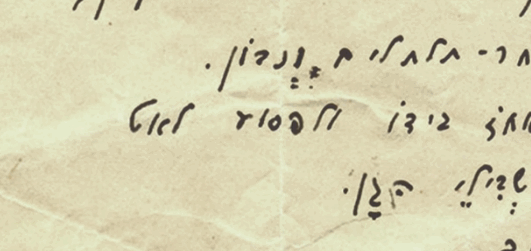 חר- תלתלים וְנָבוֹן.
אחֹז בידוֹ ולפסוע לאט
שְׁבִילֵי הַגָּן.